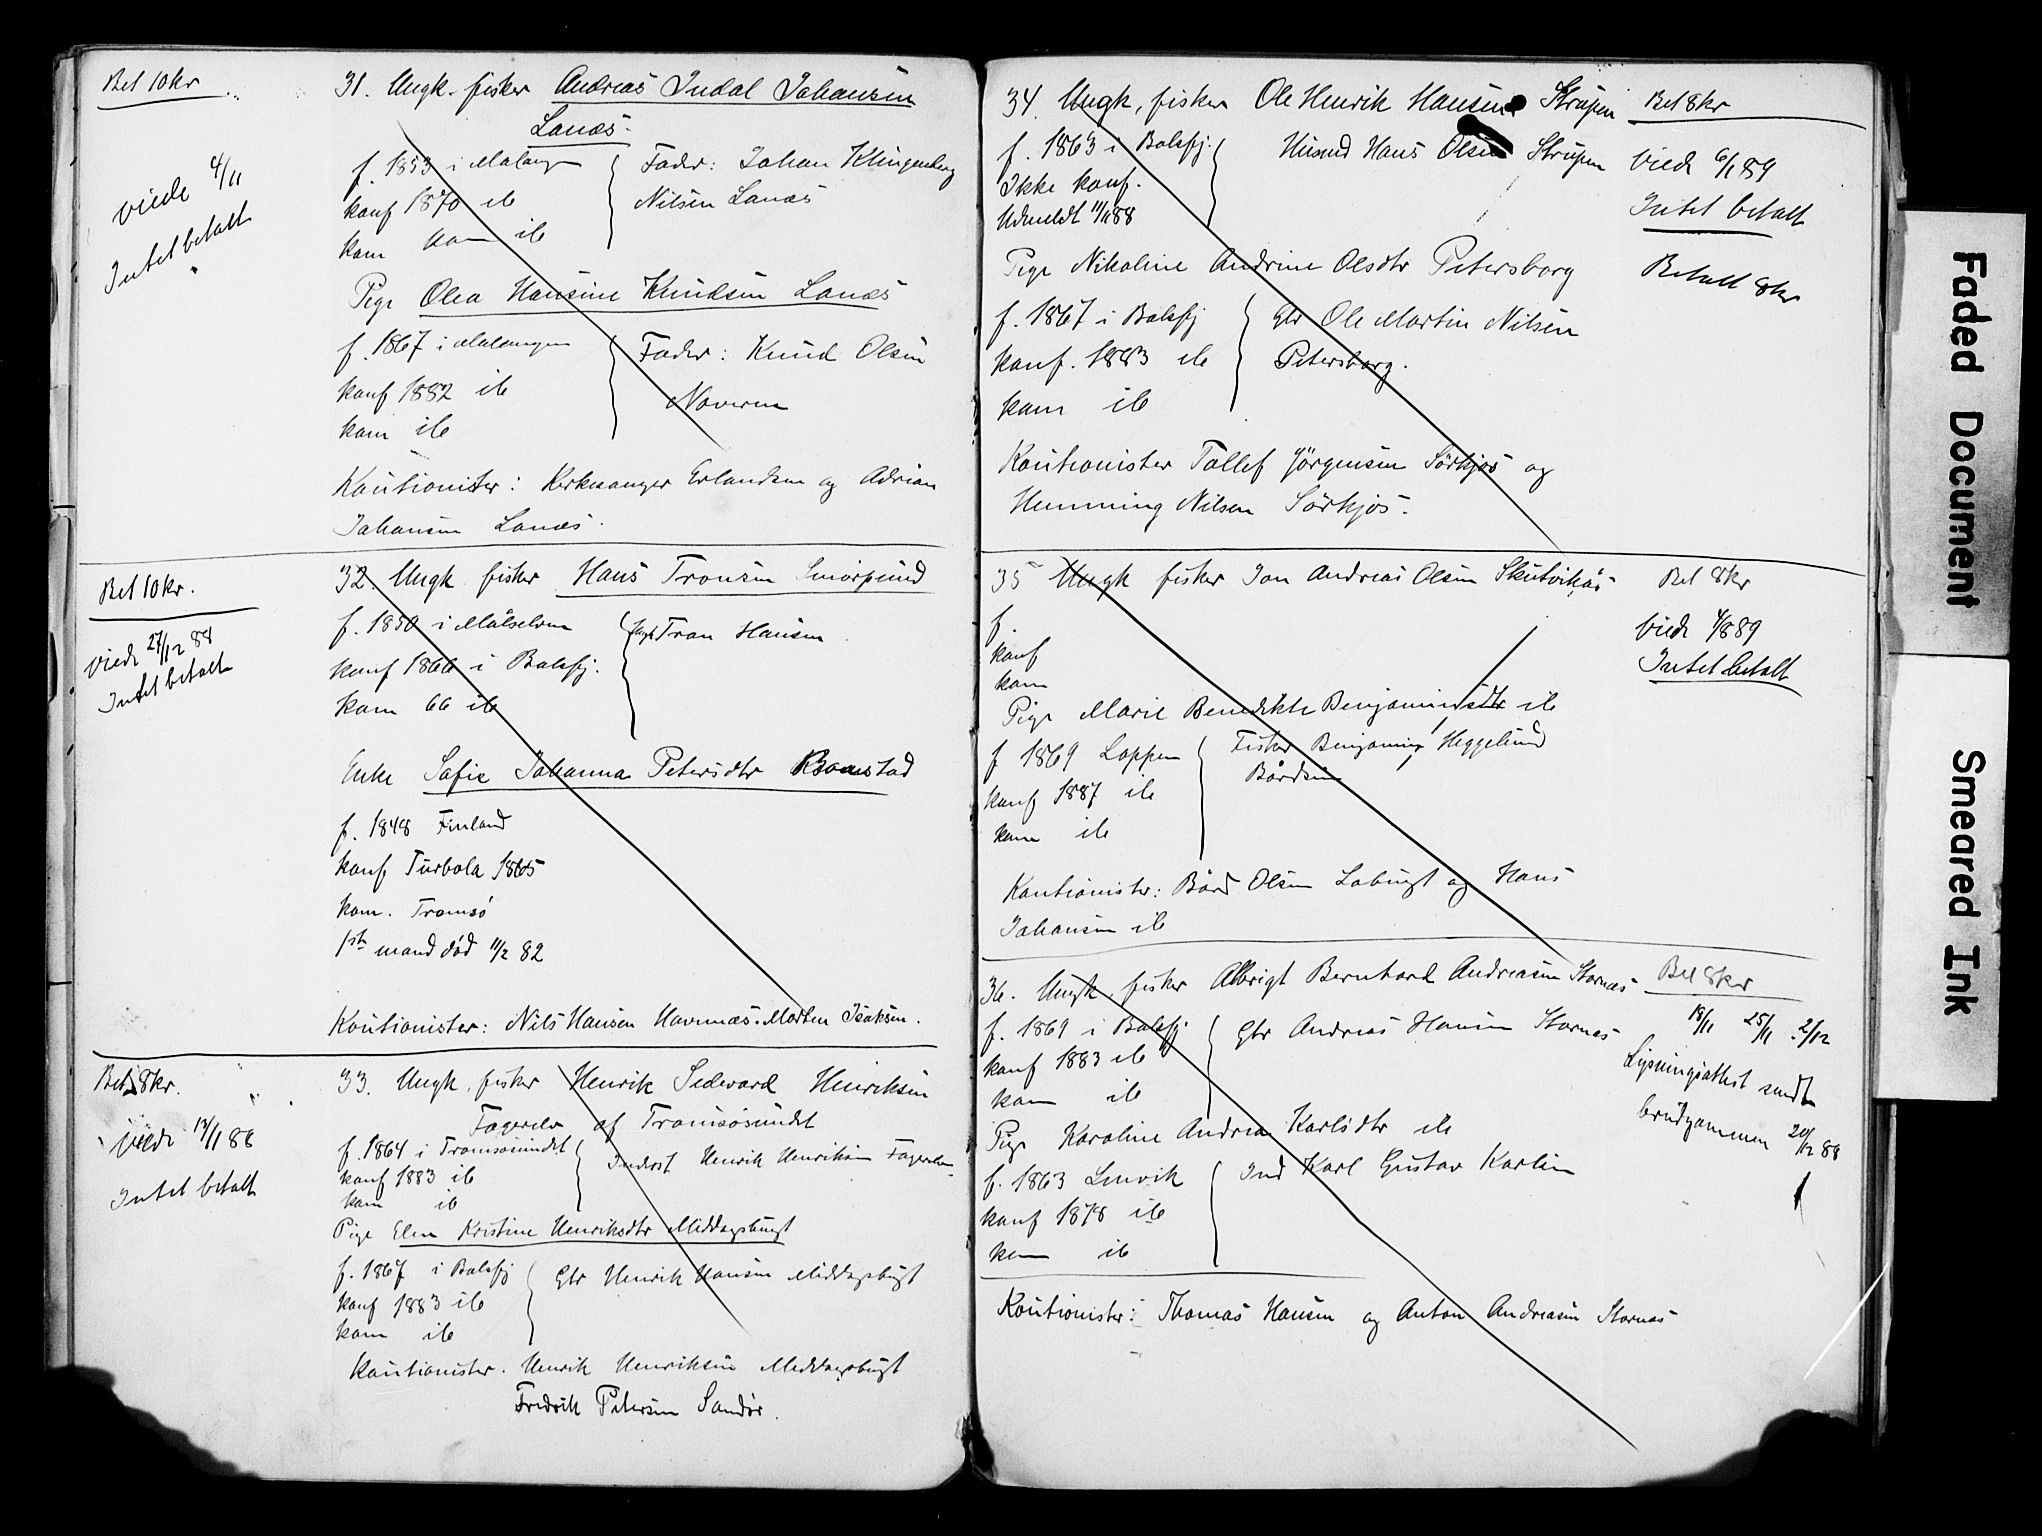 Bet 10kr
viede 4/11
Intet betalt
31. Ungk. fisker Andreas Indal Johansen
Lanæs.
f. 1853 i Malangen
konf 1870 ib
kom ib
Fader: Johan Klingenberg
Nilsen Lanæs
Pige Olea Hansine Knudsen Lanæs
f. 1867 i Malangen
konf 1882 ib
kom ib
Fader: Knud Olsen
Navaren
Kautionister: Kirkesanger Erlandsen og Adrian
Johansen Lanæs.
Bet 10kr.
viede 27/12 88
Intet betalt
32. Ungk. fisker Hans Tronsen Smørsund
f. 1850 i Målselven
konf 1866 i Balsfj.
kom 66 ib
Tron Hansen
Enke Sofie Johanna Petersdtr Bomstad
f. 1848 Finland
konf. Turbola 1865
kom. Tromsø
1ste mand død 11/2 82
Kautionister: Nils Hansen Havnnæs. Morten Isaksen.
Bet 8kr.
viede 13/1 88
Intet betalt
33. Ungk. fisker Henrik Sedevard Henriksen
Fagerelv af Tromsøsundet
f. 1864 i Tromsøsundet
konf 1883 ib
kom ib
Inderst Henrik Henriksen Fagerelv
Pige Elen Kristine Henriksdtr Middagsbugt
f. 1867 i Balsfj
konf 1883 ib
kom ib
Gbr Henrik Hansen Middagsbugt
Kautionister. Henrik Henriksen Middagsbugt
Fredrik Petersen Sandør.
34. Ungk. fisker Ole Henrik Hansen Strupen
Bet 8kr
f. 1863 i Balsfj.
Ikke konf.
Udmeldt 11/11 88
Husmd Hans Olsen Strupen
viede 6/1 89
Intet betalt
Betalt 8kr
Pige Nikoline Andrine Olsdtr Petersborg
f. 1867 i Balsfj
konf. 1883 ib
kom ib
Gbr Ole Martin Nilsen
Petersborg.
Kautionister Tollef Jörgensen Sörkjos og
Hemming Nilsen Sörkjos.
35 Ungk fisker Jon Andreas Olsen Skutviknæs
Bet 8kr
f.
konf
kom
viede 4/8 89
Intet betalt
Pige Marie Benedikte Benjaminsdtr ib
f 1869 Loppen
konf 1887 ib
kom ib
Fisker Benjamin Heggelund
Bårdsen
Kautionister: Bård Olsen Lobugt og Hans
Johansen ib
36. Ungk. fisker Albrigt Bernhard Andreasen Stornæs
Bet 8kr
f. 1869 i Balsfj
konf 1883 ib
kom ib
Gbr Andreas Hansen Stornæs
18/11 25/11 2/12
Lysningsattest sendt
brudgommen 20/12 88
Pige Karoline Andrea Karlsdtr ib
f. 1863 Lenvik
konf 1878 ib
kom ib
Ind Karl Gustav Karlsen
Kautionister: Thomas Hansen og Anton Andreasen Stornæs
Faded Document
Smeared Ink